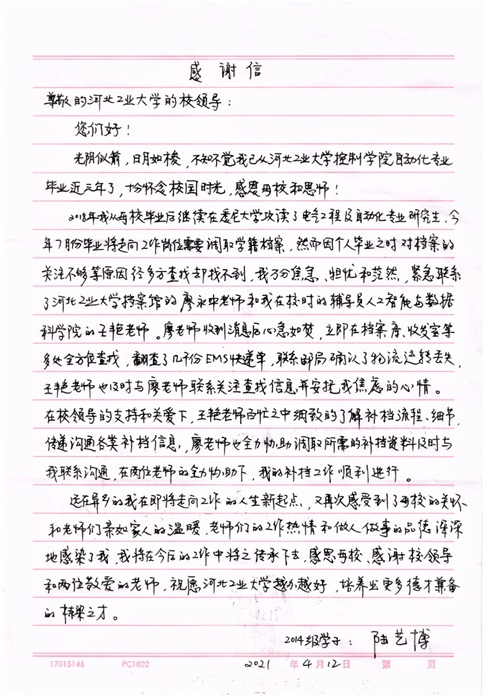 感谢信
尊敬的河北工业大学的校领导：
您们好！
光阴似箭，日月如梭，不知不觉我已从河北工业大学控制学院自动化专业
毕业近三年了，十分怀念校园时光，感恩母校和恩师！
2018年我从母校毕业后继续在悉尼大学攻读了电气工程及自动化专业研究生，今
年7月份毕业将走向工作岗位需要调取学籍档案，然而因个人毕业之时对档案的
关注不够等原因经多方查找却找不到，我万分焦急、担忧和茫然，紧急联系
了河北工业大学档案馆的廖永中老师和我在校时的辅导员人工智能与数据
科学院的王艳老师。廖老师收到消息后心急如焚，立即在档案库、收发室等
多处全方位查找，翻查了几千份EMS快递单，联系邮局确认了物流运转丢失，
王艳老师也及时与廖老师联系关注查找信息并安抚我焦虑的心情。
在校领导的支持和关爱下，王艳老师百忙之中细致的了解补档流程、细节，
传递沟通各类补档信息，廖老师也全力协助调取所需的补档资料及时与
我联系沟通，在两位老师的全力协助下，我的补档工作顺利进行。
远在异乡的我在即将走向工作的人生新起点，又再次感受到了母校的关怀
和老师们亲如家人的温暖，老师们的工作热情和做人做事的品德深深
地感染了我，我将在今后的工作中将之传承下去，感恩母校、感谢校领导
和两位敬爱的老师，祝愿河北工业大学越办越好，培养出更多德才兼备
的栋梁之才。
2014级学子：陆艺博
17015146 PC1802 2021 年 4 月 12 日 第 页